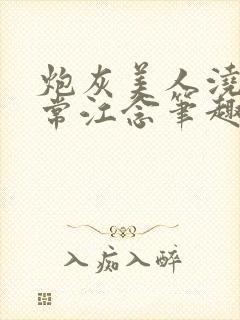 炮灰美人浇
常江念笔趣
入痴入醉